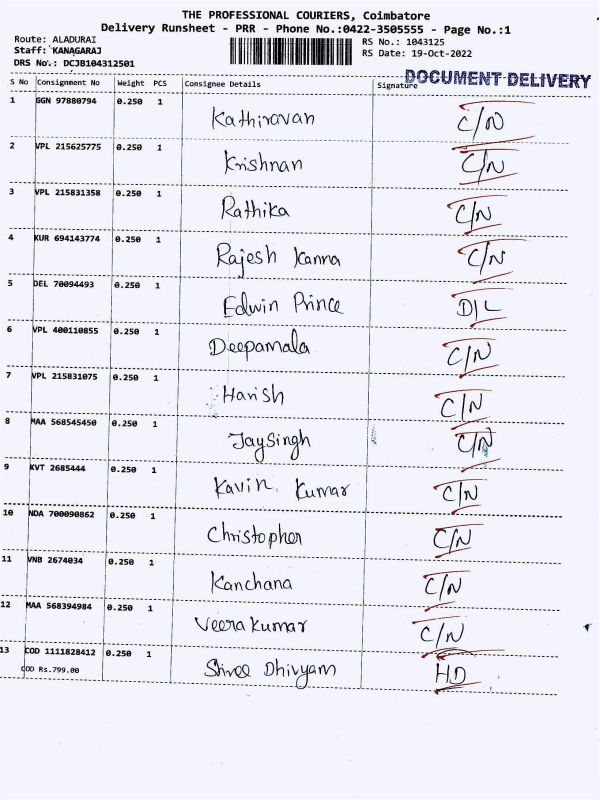 THE PROFESSIONAL COURIERS, Coimbatore
Delivery Runsheet - PRR - Phone No.:0422-3505555 - Page No.:1
Route: ALADURAI RS No.: 1043125
Staff: KANAGARAJ RS Date: 19-Oct-2022
DRS No.: DCJB104312501
DOCUMENT DELIVERY
S No Consignment No Weight PCS Consignee Details Signature
1 GGN 97880794 0.250 1 Kathiravan C/N
2 VPL 215625775 0.250 1 Krishnan C/N
3 VPL 215831358 0.250 1 Rathika C/N
4 KUR 694143774 0.250 1 Rajesh Kanna C/N
5 DEL 70094493 0.250 1 Edwin Prince D/L
6 VPL 400110855 0.250 1 Deepamala C/N
7 VPL 215831075 0.250 1 Harish C/N
8 MAA 568545450 0.250 1 JaySingh C/N
9 KVT 2685444 0.250 1 Kavin Kumar C/N
10 NDA 700090862 0.250 1 Christopher C/N
11 VNB 2674034 0.250 1 Kanchana C/N
12 MAA 568394984 0.250 1 Veerakumar C/N
13 COD 1111828412 0.250 1 Shree Dhivyam HD
COD Rs.799.00